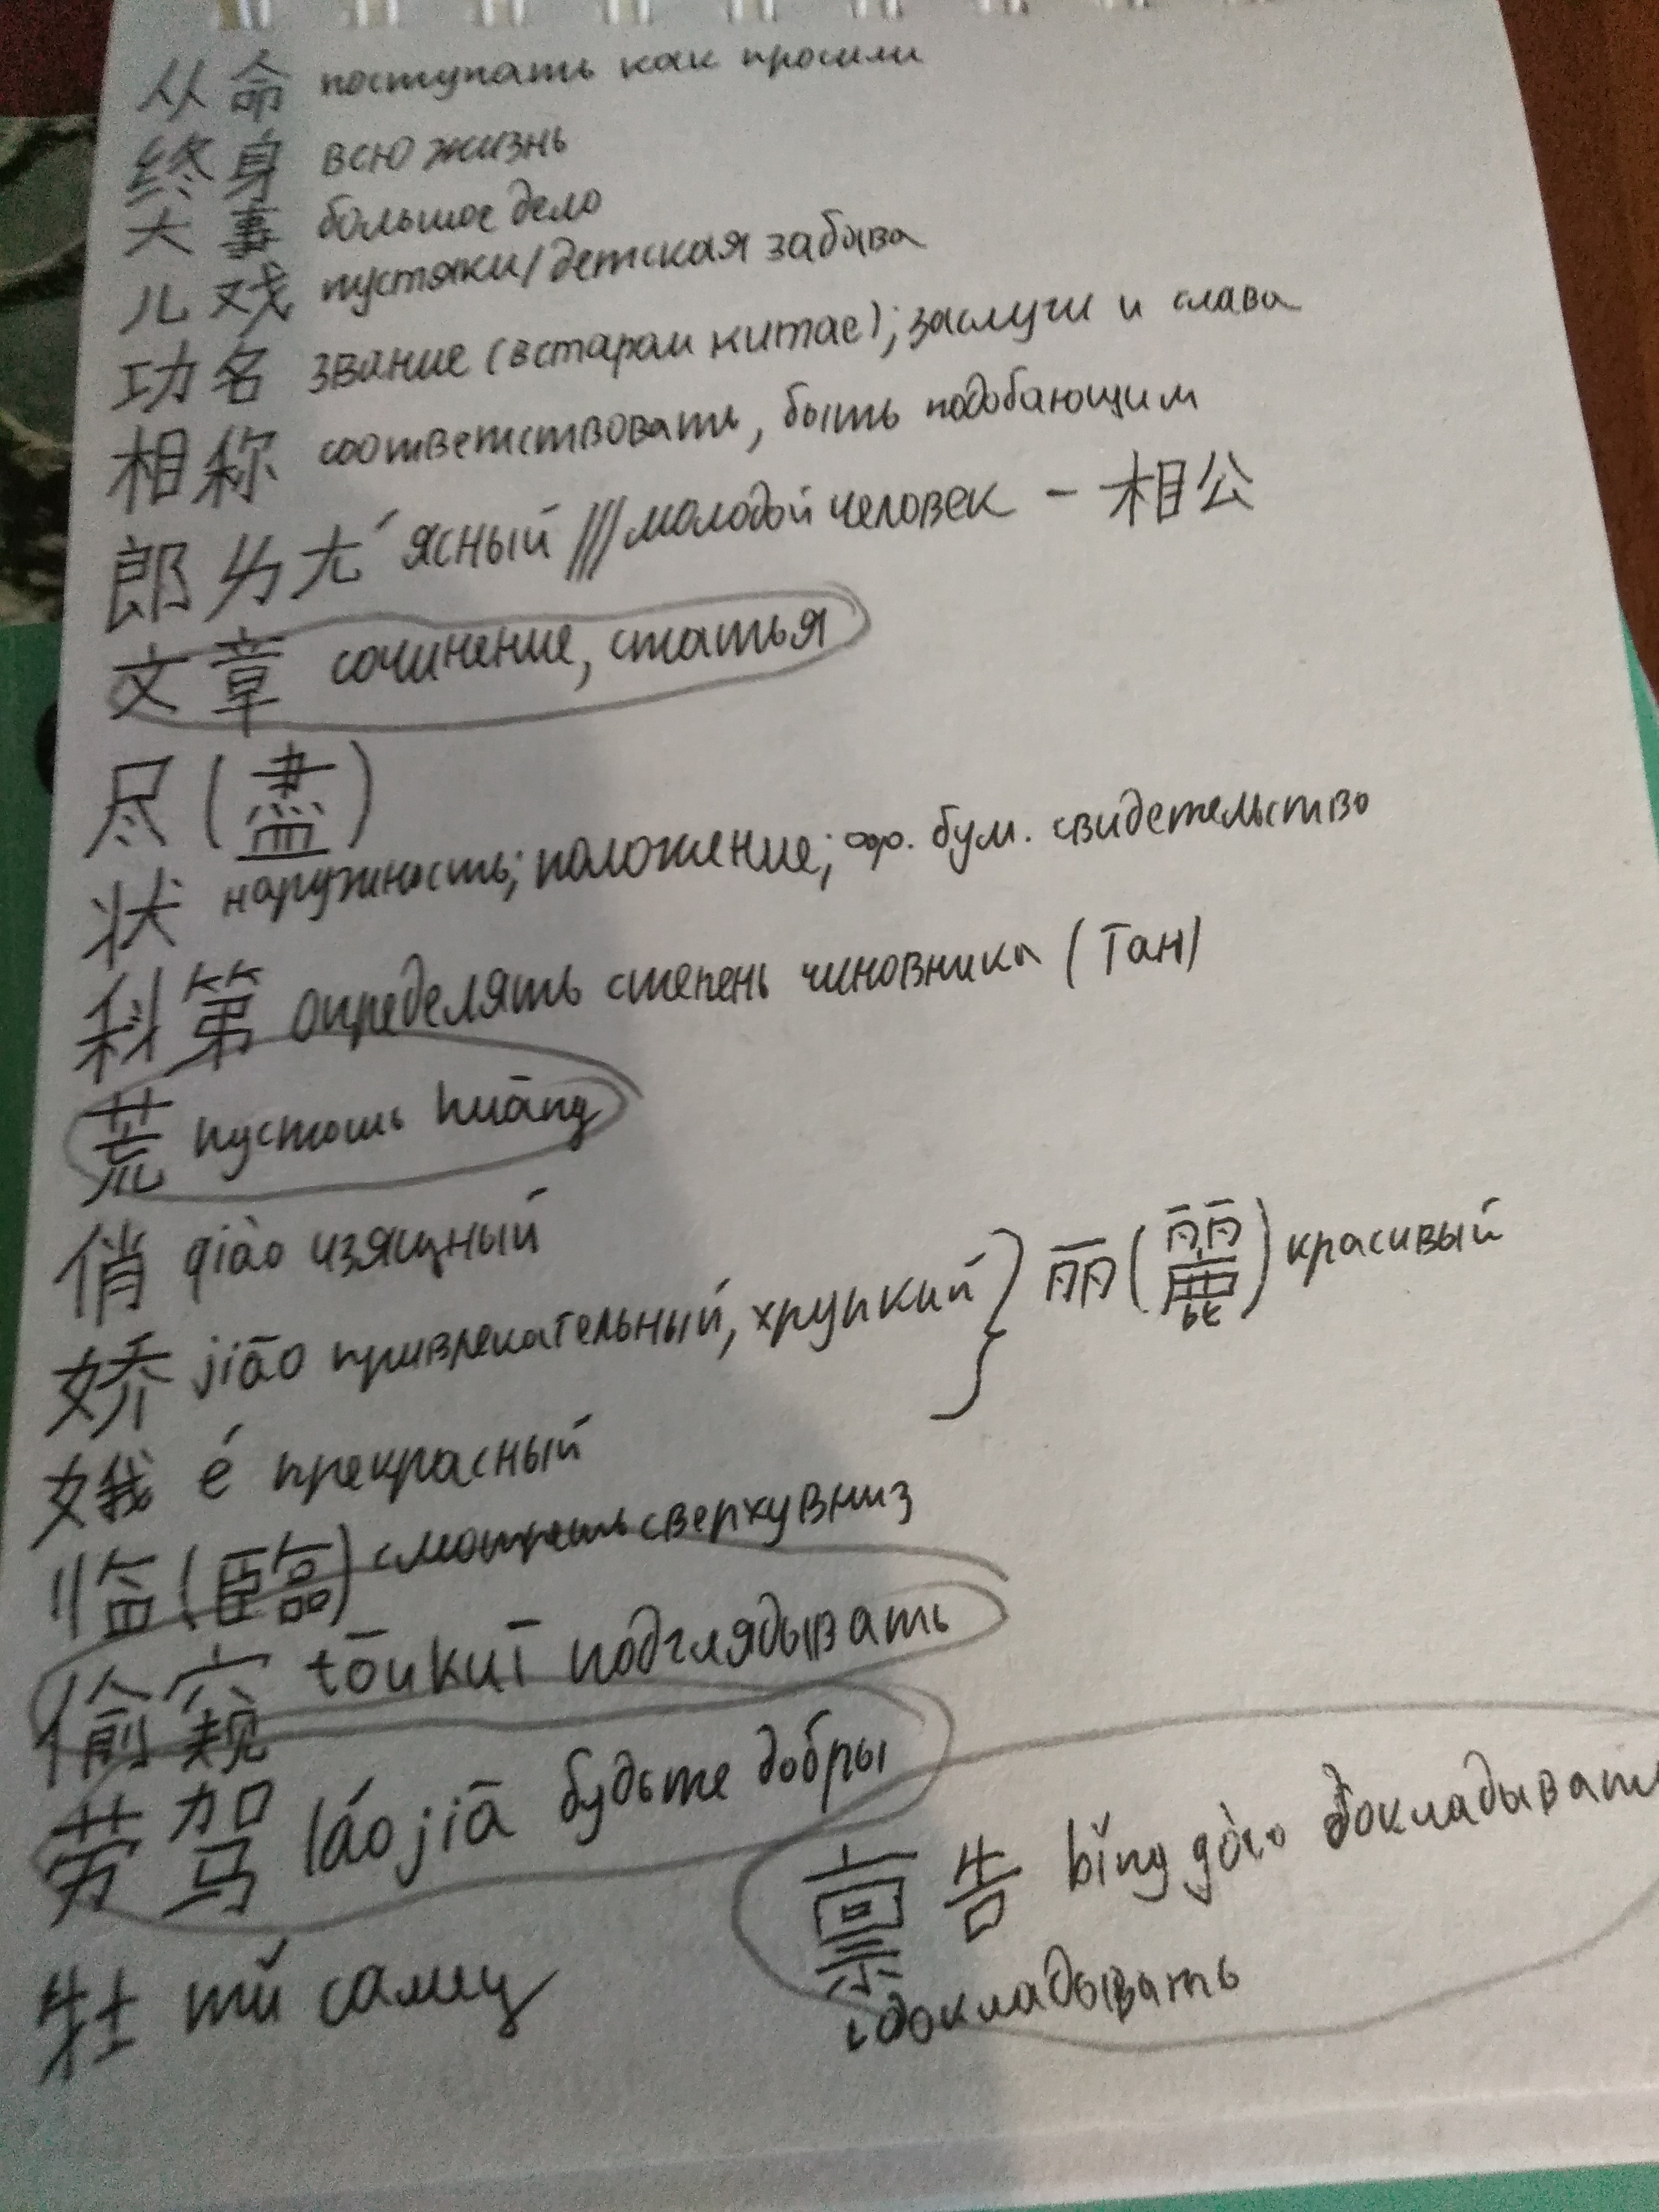 从命 поступать как просили
终身 всю жизнь
大事 большое дело
儿戏 пустяки/детская забава
功名 звание (в старом китае); заслуги и слава
相称 соответствовать, быть подобающим
郎 ㄌㄤˊ ясный /// молодой человек - 相公
文章 сочинение, статья
尽(盡)
状 наружность; положение; оф. бум. свидетельство
科第 определять степень чиновника (Тан)
荒 пустошь huāng
俏 qiào изящный
娇 jiāo привлекательный, хрупкий } 丽(麗) красивый
娥 é прекрасный
临(臨) смотреть сверху вниз
偷窥 tōukuī подглядывать
劳驾 láojià будьте добры
禀告 bǐng gào докладывать
докладывать
牡 mǔ самец